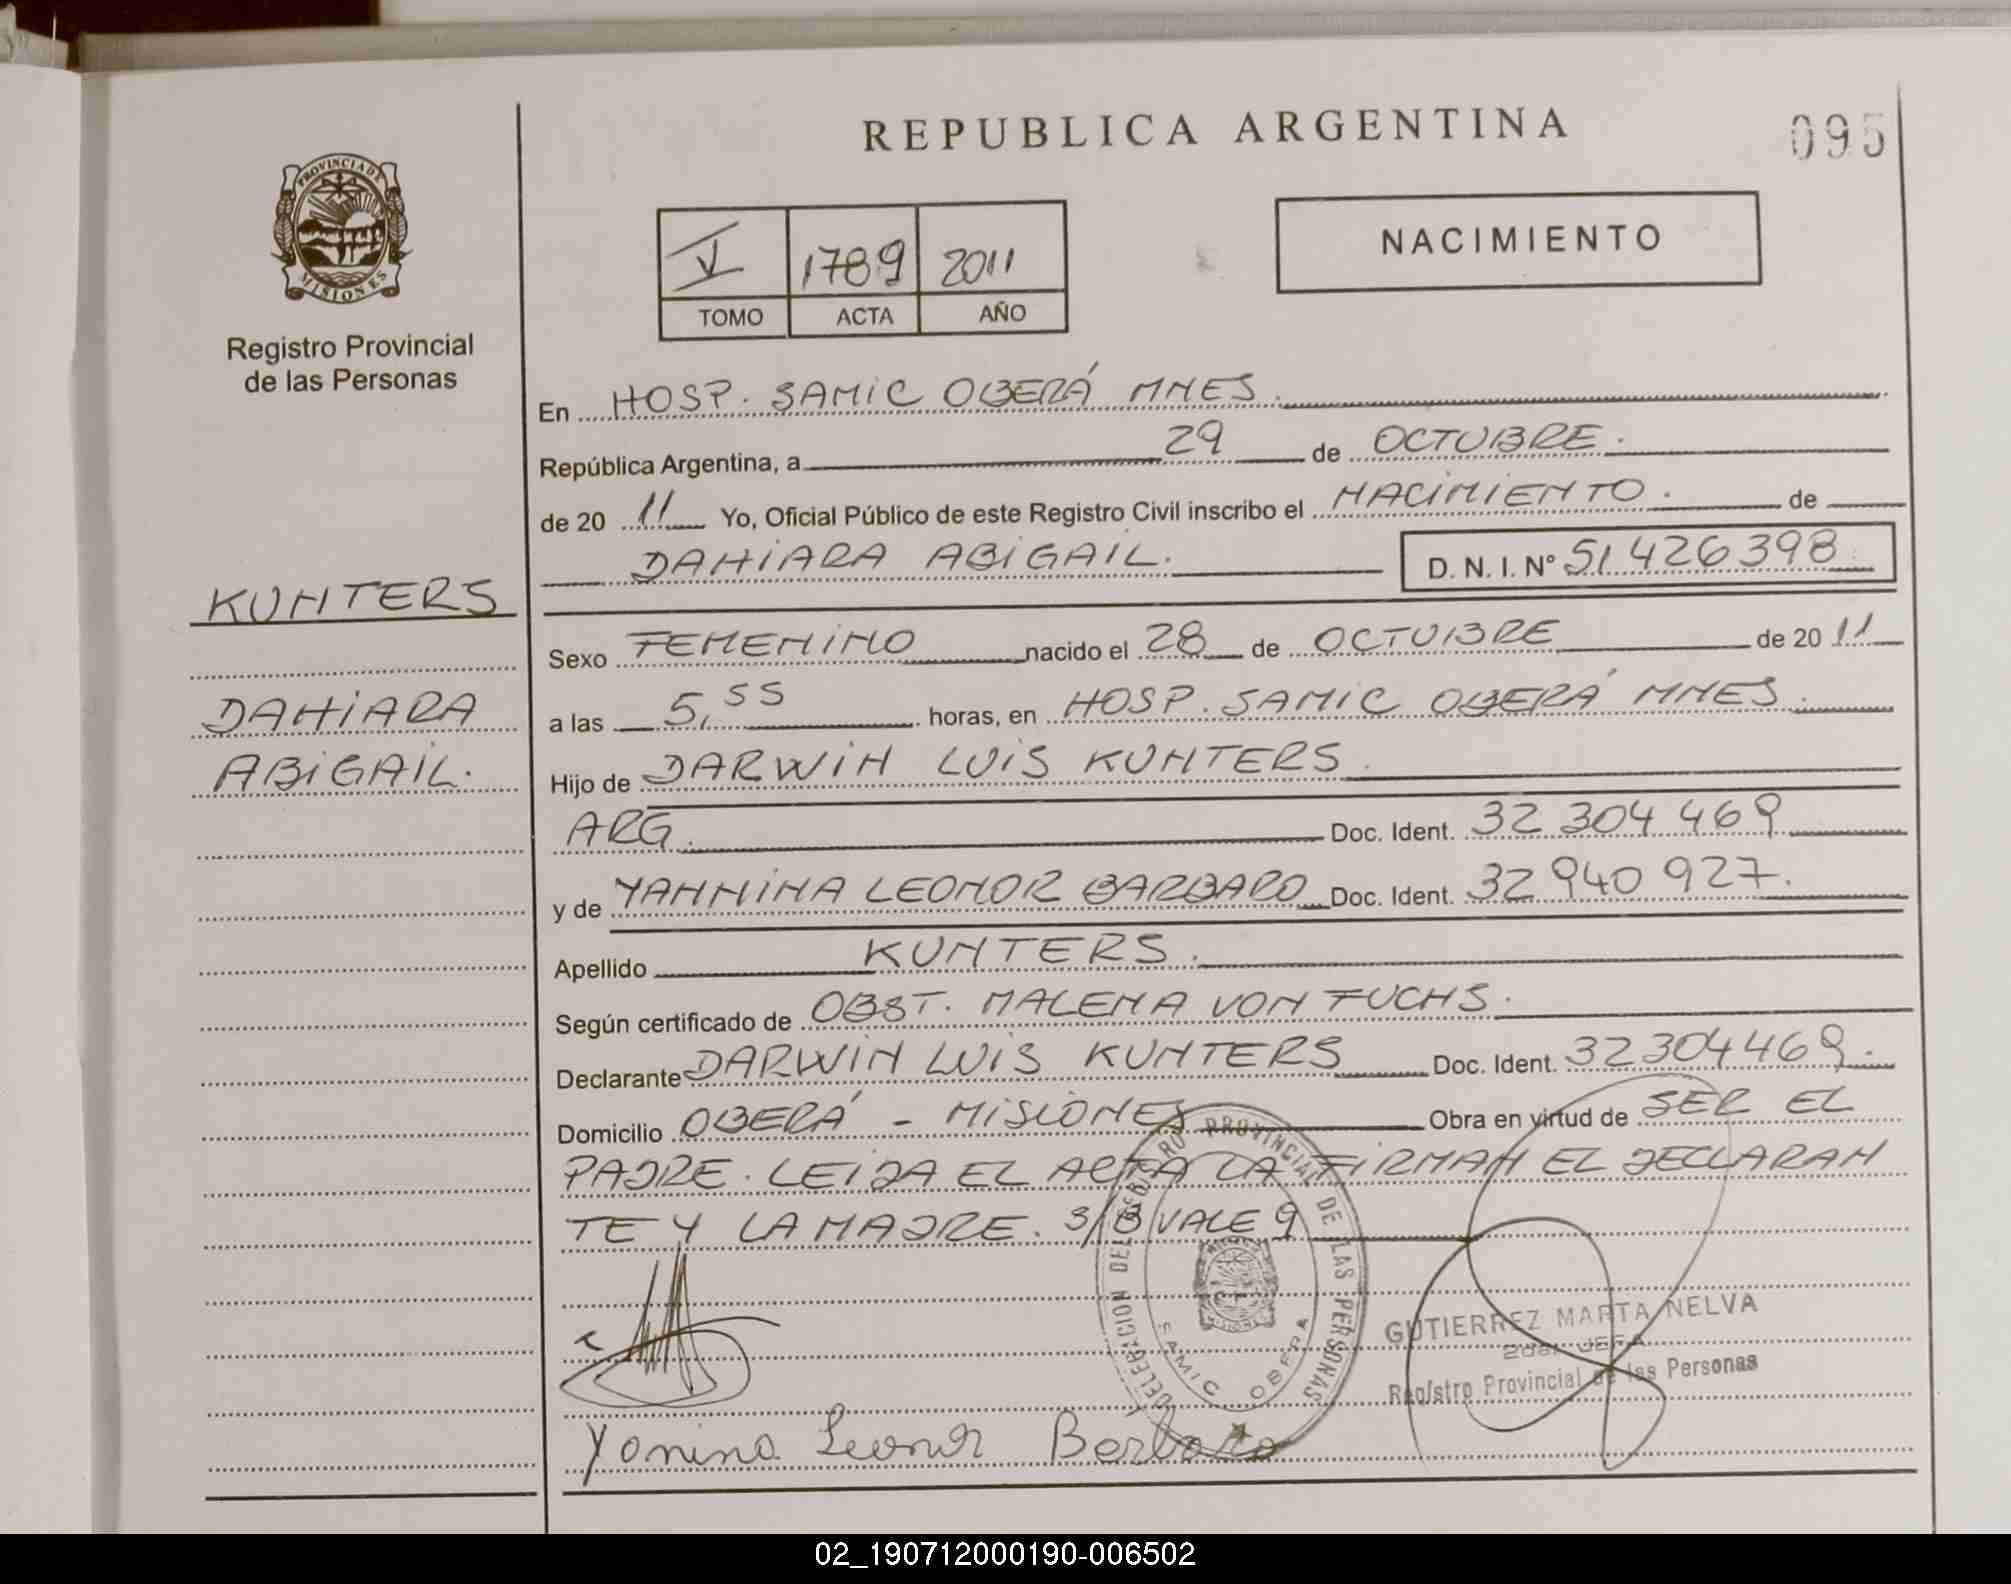 REPUBLICA ARGENTINA
095
PROVINCIA DE
MISIONES
Registro Provincial
de las Personas
V 1789 2011
TOMO ACTA AÑO
NACIMIENTO
En HOSP. SAMIC OBERÁ MNES.
República Argentina, a 29 de OCTUBRE.
de 20 11 Yo, Oficial Público de este Registro Civil inscribo el NACIMIENTO. de
DAHIARA ABIGAIL. D. N. I. Nº 51.426398
KUNTERS
DAHIARA
ABIGAIL.
Sexo FEMENINO nacido el 28 de OCTUBRE de 20 11
a las 5,55 horas, en HOSP. SAMIC OBERÁ MNES.
Hijo de DARWIN LUIS KUNTERS.
ARG. Doc. Ident. 32 304 469
y de YANNINA LEONOR BARBARO Doc. Ident. 32 940 927.
Apellido KUNTERS.
Según certificado de OBST. MALENA VON FUCHS.
Declarante DARWIN LUIS KUNTERS Doc. Ident. 32304469.
Domicilio OBERÁ - MISIONES Obra en virtud de SER EL
PADRE. LEIDA EL ACTA LA FIRMAN EL DECLARAN
TE Y LA MADRE. S/B VALE 9
DELEGACION DEL REGISTRO PROVINCIAL DE LAS PERSONAS
SAMIC OBERA
GUTIERREZ MARTA NELVA
2da. JEFA
Registro Provincial de las Personas
Yanina Leonor Barbaro
02_190712000190-006502